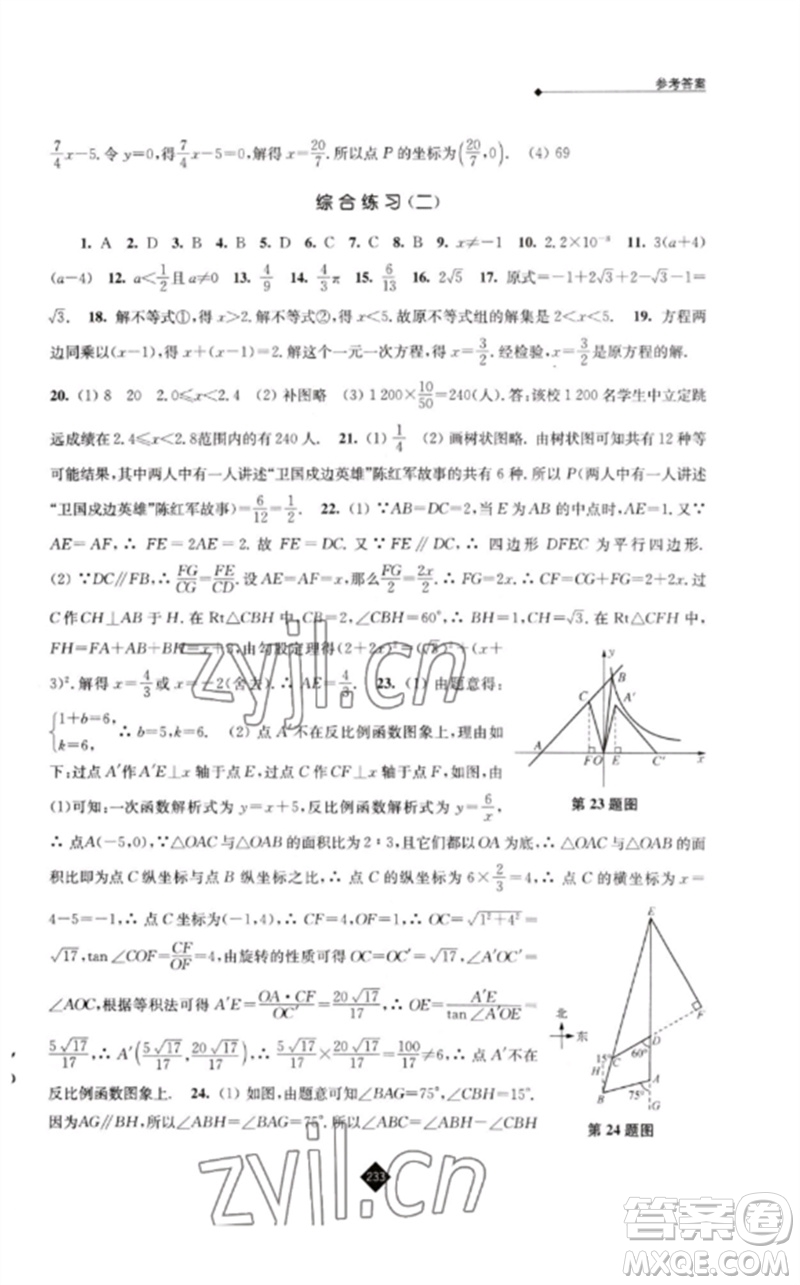 参考答案
7/4x-5.令 y=0,得7/4x-5=0,解得 x=20/7.所以点 P 的坐标为(20/7,0). (4) 69
综合练习(二)
1. A 2. D 3. B 4. D 5. D 6. C 7. C 8. B 9. x≠-1 10. 2.2×10⁻⁸ 11. 3(a+4)
(a-4) 12. a<1/2且 a≠0 13. 4/9 14. 4/3π 15. 6/13 16. 2√5 17. 原式=-1+2√3+2-√3-1=
√3. 18. 解不等式①,得 x>2.解不等式②,得 x<5.故原不等式组的解集是 2<x<5. 19. 方程两
边同乘以(x-1),得 x+(x-1)=2.解这个一元一次方程,得 x=3/2.经检验,x=3/2是原方程的解.
20. (1) 8 20 2.0≤x<2.4 (2) 补图略 (3) 1 200×10/50=240(人).答:该校 1 200 名学生中立定跳
远成绩在 2.4≤x<2.8范围内的有 240 人. 21. (1) 1/4 (2) 画树状图略. 由树状图可知共有 12 种等
可能结果,其中两人中有一人讲述“卫国戍边英雄”陈红军故事的共有 6 种.所以 P(两人中有一人讲述
“卫国戍边英雄”陈红军故事)=6/12=1/2. 22. (1) ∵AB=DC=2,当 E 为AB 的中点时,AE=1.又∵
AE=AF,∴ FE=2AE=2. 故 FE=DC. 又∵ DC∥FE,∴ 四边形 DFEC 为平行四边形.
(2) ∵DC∥FB,∴ FG/CG=FE/CD.设 AE=AF=x,那么FG/2=2x/2.∴ CF=CG+FG=2+2x.过
C 作 CH⊥AB 于 H. 在 Rt△CBH 中,CB=2,∠CBH=60°,∴ BH=1,CH=√3. 在 Rt△CFH 中,
FH=FA+AB+BH=x+3,由勾股定理得(2+2x)²=(√3)²+(x+
3)².解得 x=4/3或 x=-2(舍去).∴ AE=4/3. 23. (1) 由题意得:
{1+b=6,
k=6, ∴ b=5,k=6. (2) 点 A′不在反比例函数图象上,理由如
下:过点 A′作A′E⊥x 轴于点 E,过点 C 作CF⊥x 轴于点 F,如图,由
(1)可知:一次函数解析式为 y=x+5,反比例函数解析式为 y=6/x,
∴ 点A(-5,0),∵△OAC与△OAB 的面积比为 2∶3,且它们都以 OA 为底,∴ △OAC与△OAB 的面
积比即为点C 纵坐标与点 B 纵坐标之比,∴ 点 C 的纵坐标为 6×2/3=4,∴ 点 C 的横坐标为 x=
4-5=-1,∴ 点 C 坐标为(-1,4),∴ CF=4,OF=1,∴ OC=√1²+4²=
√17,tan∠COF=CF/OF=4,由旋转的性质可得 OC=OC′=√17,∠A′OC′=
∠AOC,根据等积法可得 A′E=OA·CF/OC′=20√17/17,∴ OE=A′E/tan∠A′OE=
5√17/17,∴ A′(5√17/17,20√17/17),∴ 5√17/17×20√17/17=100/17≠6,∴ 点 A′不在
反比例函数图象上. 24. (1) 如图,由题意可知∠BAG=75°,∠CBH=15°.
因为AG∥BH,所以∠ABH=∠BAG=75°.所以∠ABC=∠ABH-∠CBH
y
B
C
A′
A
F
O
E
C′
x
第 23 题图
E
F
北
东
D
60°
15°
C
H
A
B
75°
G
第 24 题图
233
zyjl.cn
zyjl.cn
答案卷
MXQE.COM